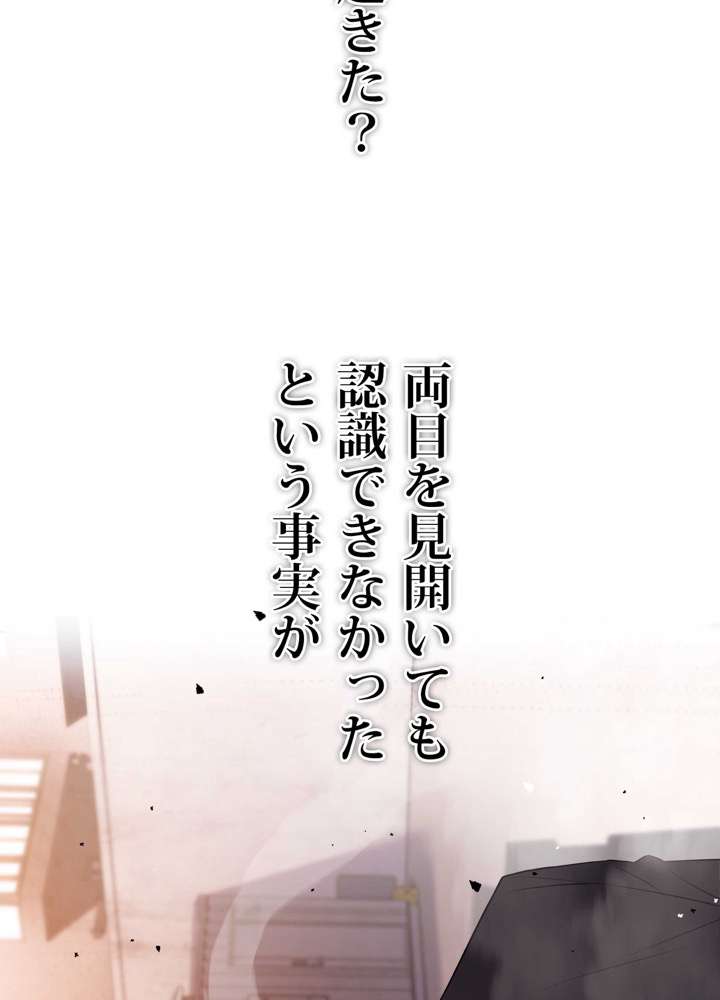 きた？
両目を見開いても
認識できなかった
という事実が